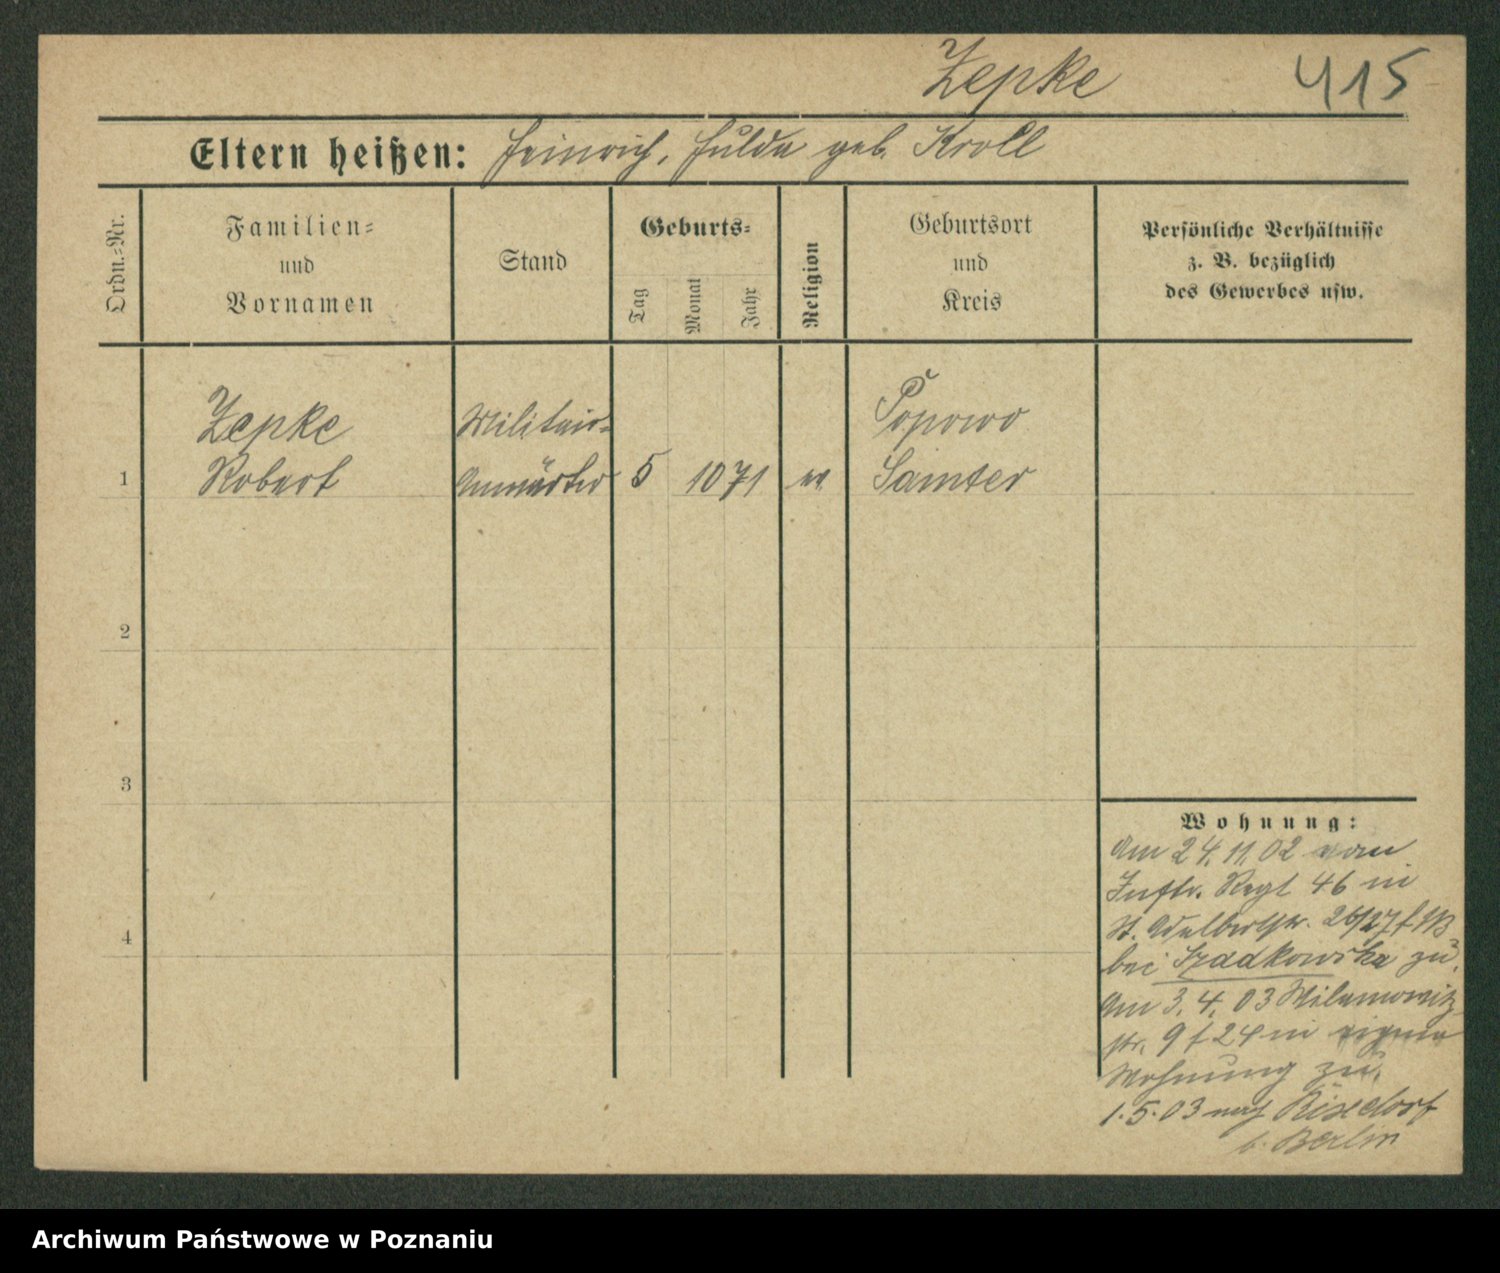 Zepke 415
Eltern heißen: Heinrich, Hulda geb. Kroll
Ordn.-Nr.
Familien-
und
Vornamen
Stand
Geburts-
Tag
Monat
Jahr
Religion
Geburtsort
und
Kreis
Persönliche Verhältnisse
z. B. bezüglich
des Gewerbes usw.
Zepke
Robert
Militair-
Anwärter
5 10 71 ev
Popowo
Samter
1
2
3
4
Wohnung:
Am 24.11.02 vom
Inftr. Regt 46 in
St. Adalbertstr. 26/27
bei zu.
Am 3.4.03
str. 9 in eigene
Wohnung zu.
1.5.03 nach Rixdorf
b. Berlin
Archiwum Państwowe w Poznaniu